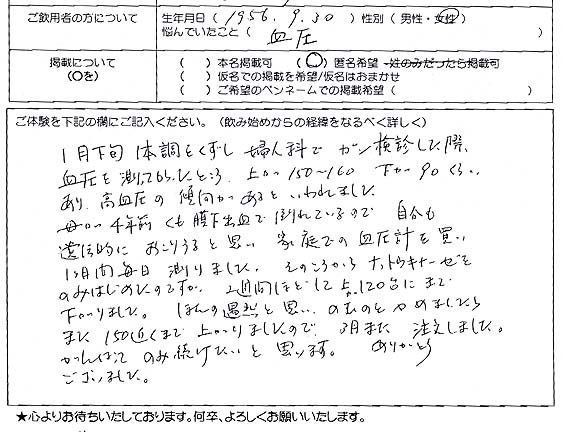 ご飲用者の方について
生年月日（ 1956. 9. 30 ）性別（ 男性・女性 ）
悩んでいたこと（ 血圧 ）
掲載について
（○を）
（ ）本名掲載可 （○）匿名希望 姓のみだったら掲載可
（ ）仮名での掲載を希望/仮名はおまかせ
（ ）ご希望のペンネームでの掲載希望（ ）
ご体験を下記の欄にご記入ください。（飲み始めからの経緯をなるべく詳しく）
1月下旬 体調をくずし 婦人科で ガン検診した際、
血圧を測ってもらったところ、上が150～160 下が90くらい
あり、高血圧の傾向があるといわれました。
母が 4年前 くも膜下出血で倒れているので 自分も
遺伝的に おこりうると思い 家庭での血圧計を買い
1ヶ月間毎日 測りました。そのころから ナットウキナーゼを
のみはじめたのですが、2週間ほどして上が120台にまで
下がりました。ほんの偶然と思い、のむのとやめましたら
また 150近くまで 上がりましたので、3月また 注文しました。
がんばって のみ続けたいと思います。 ありがとう
ございました。
★心よりお待ちいたしております。何卒、よろしくお願いいたします。